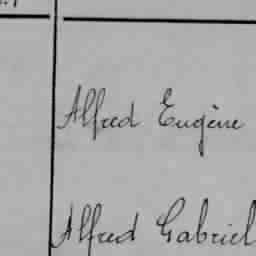 Alfred Eugène
Alfred Gabriel